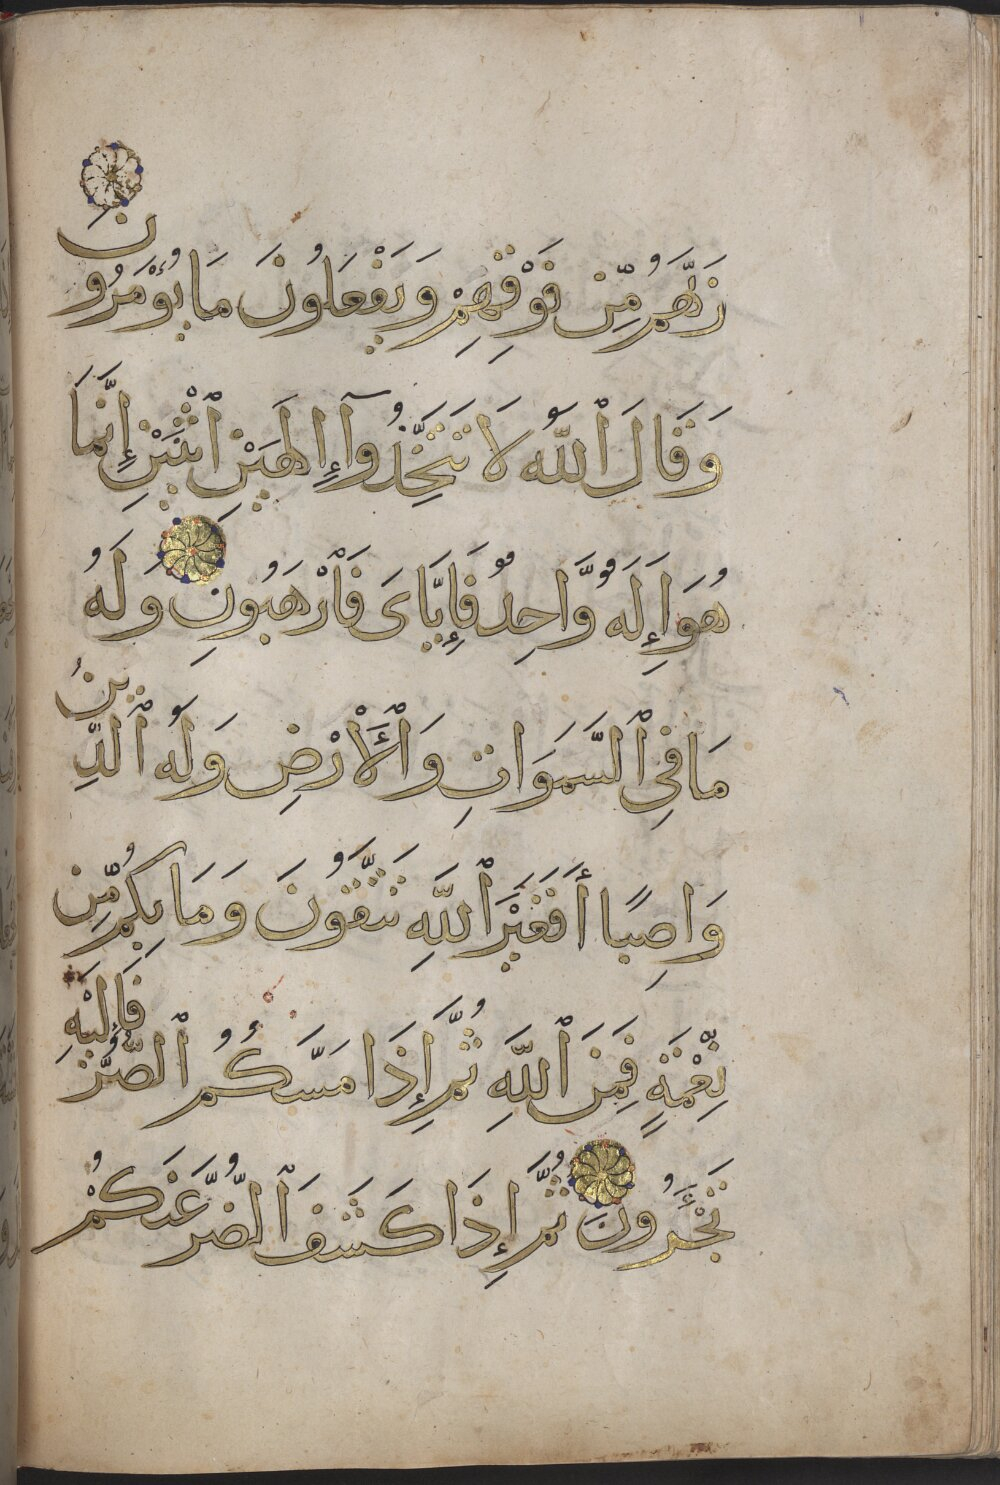 رَبَّهُم مِّن فَوْقِهِمْ وَيَفْعَلُونَ مَا يُؤْمَرُونَ
وَقَالَ ٱللَّهُ لَا تَتَّخِذُوٓا إِلَٰهَيْنِ ٱثْنَيْنِ إِنَّمَا
هُوَ إِلَٰهٌ وَّاحِدٌ فَإِيَّايَ فَٱرْهَبُونِ وَلَهُ
مَا فِي ٱلسَّمَوَاتِ وَٱلْأَرْضِ وَلَهُ ٱلدِّينُ
وَاصِبًا أَفَغَيْرَ ٱللَّهِ تَتَّقُونَ وَمَا بِكُم مِّن
نِّعْمَةٍ فَمِنَ ٱللَّهِ ثُمَّ إِذَا مَسَّكُمُ ٱلضُّرُّ فَإِلَيْهِ
تَجْـَٔرُونَ ثُمَّ إِذَا كَشَفَ ٱلضُّرَّ عَنكُمْ